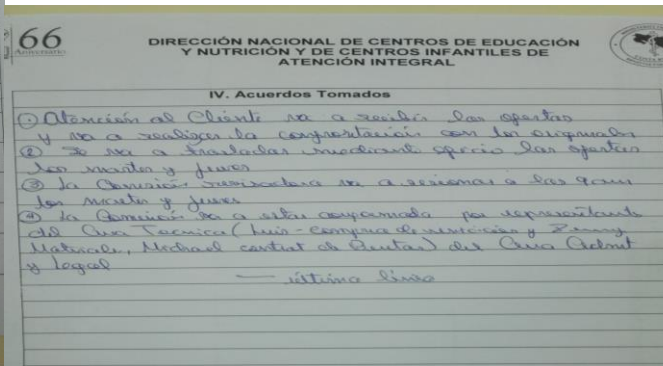 66
Aniversario
DIRECCIÓN NACIONAL DE CENTROS DE EDUCACIÓN
Y NUTRICIÓN Y DE CENTROS INFANTILES DE
ATENCIÓN INTEGRAL
IV. Acuerdos Tomados
① Atención al Cliente va a recibir las ofertas
y va a realizar la confrontación con los originales
② Se va a trasladar mediante oficio las ofertas
los martes y jueves
③ La Comisión revisadora va a sesionar a las 9am
los martes y jueves
④ La Comisión va a estar conformada por representante
del Area Tecnica (Luis - compra de servicios y
Materiales, Michael control de ) del Area Admt
y legal
— última línea